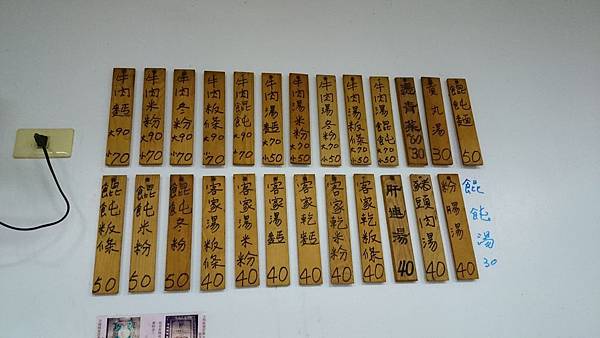 牛肉麵 大90 小70
牛肉米粉 大90 小70
牛肉冬粉 大90 小70
牛肉粄條 大90 小70
牛肉餛飩 大90 小70
牛肉湯麵 大70 小50
牛肉湯米粉 大70 小50
牛肉湯冬粉 大70 小50
牛肉湯粄條 大70 小50
牛肉湯餛飩 大70 小50
燙青菜 30
貢丸湯 30
餛飩麵 50
餛飩粄條 50
餛飩米粉 50
餛飩冬粉 50
客家湯粄條 40
客家湯米粉 40
客家湯麵 40
客家乾麵 40
客家乾米粉 40
客家乾粄條 40
肝連湯 40
豬頭肉湯 40
粉腸湯 40
餛飩湯 30